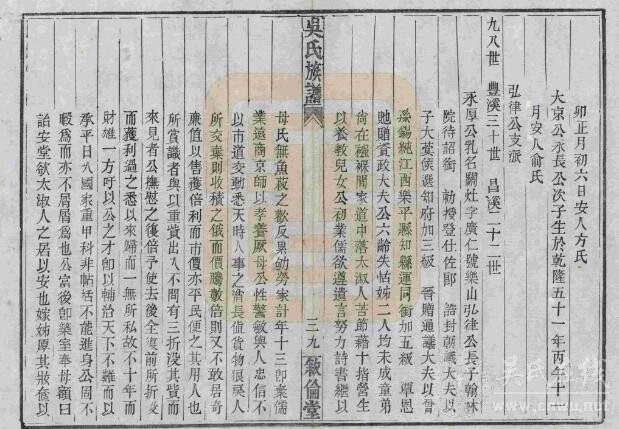 卯正月初六日安人方氏
大京公永長公次子生於乾隆五十一年丙午十一
月安人俞氏
弘律公支派
九八世 豐溪三十世 昌溪二十二世
永厚公乳名關灶字廣仁號樂山弘律公長子翰林
院待詔銜 勅授登仕佐郎 誥封朝議大夫以
子大英候選知府加三級 晉贈通議大夫以曾
孫錫純江西樂平縣知縣運同銜加五級 覃恩
貤贈資政大夫公六齡失怙姊二人均未成童弟
尚在襁褓間家道中落太淑人苦節藉十指營生
以養教兒女公初業儒欲遵遺言努力詩書繼以
吳氏族譜
三九 敍倫堂
母氏無魚菽之歡反累劬勞家計年十三卽棄儒
業遠商京師以孝養厥母公性警敏與人忠信不
以市道交動悉天時人事之消長值貨物狼戾人
所交棄則收積之俄而價騰數倍則又不敢居奇
廉值以售獲倍利而市價亦平民便之其用人也
所賞識者與以重貲出入不問有三折沒其貲而
來見者公撫慰之復倍予使去後全復前所折
而獲利過之悉以來歸而一無所私故不十年而
財雄一方吁以公之才卽以輔治天下不難而以
承平日久國家重甲科非帖括不能進身公固不
暇爲而亦不屑屑爲也公富後卽築室奉母額曰
詒安堂欲太淑人之居以安也嫁姊厚其妝奩以